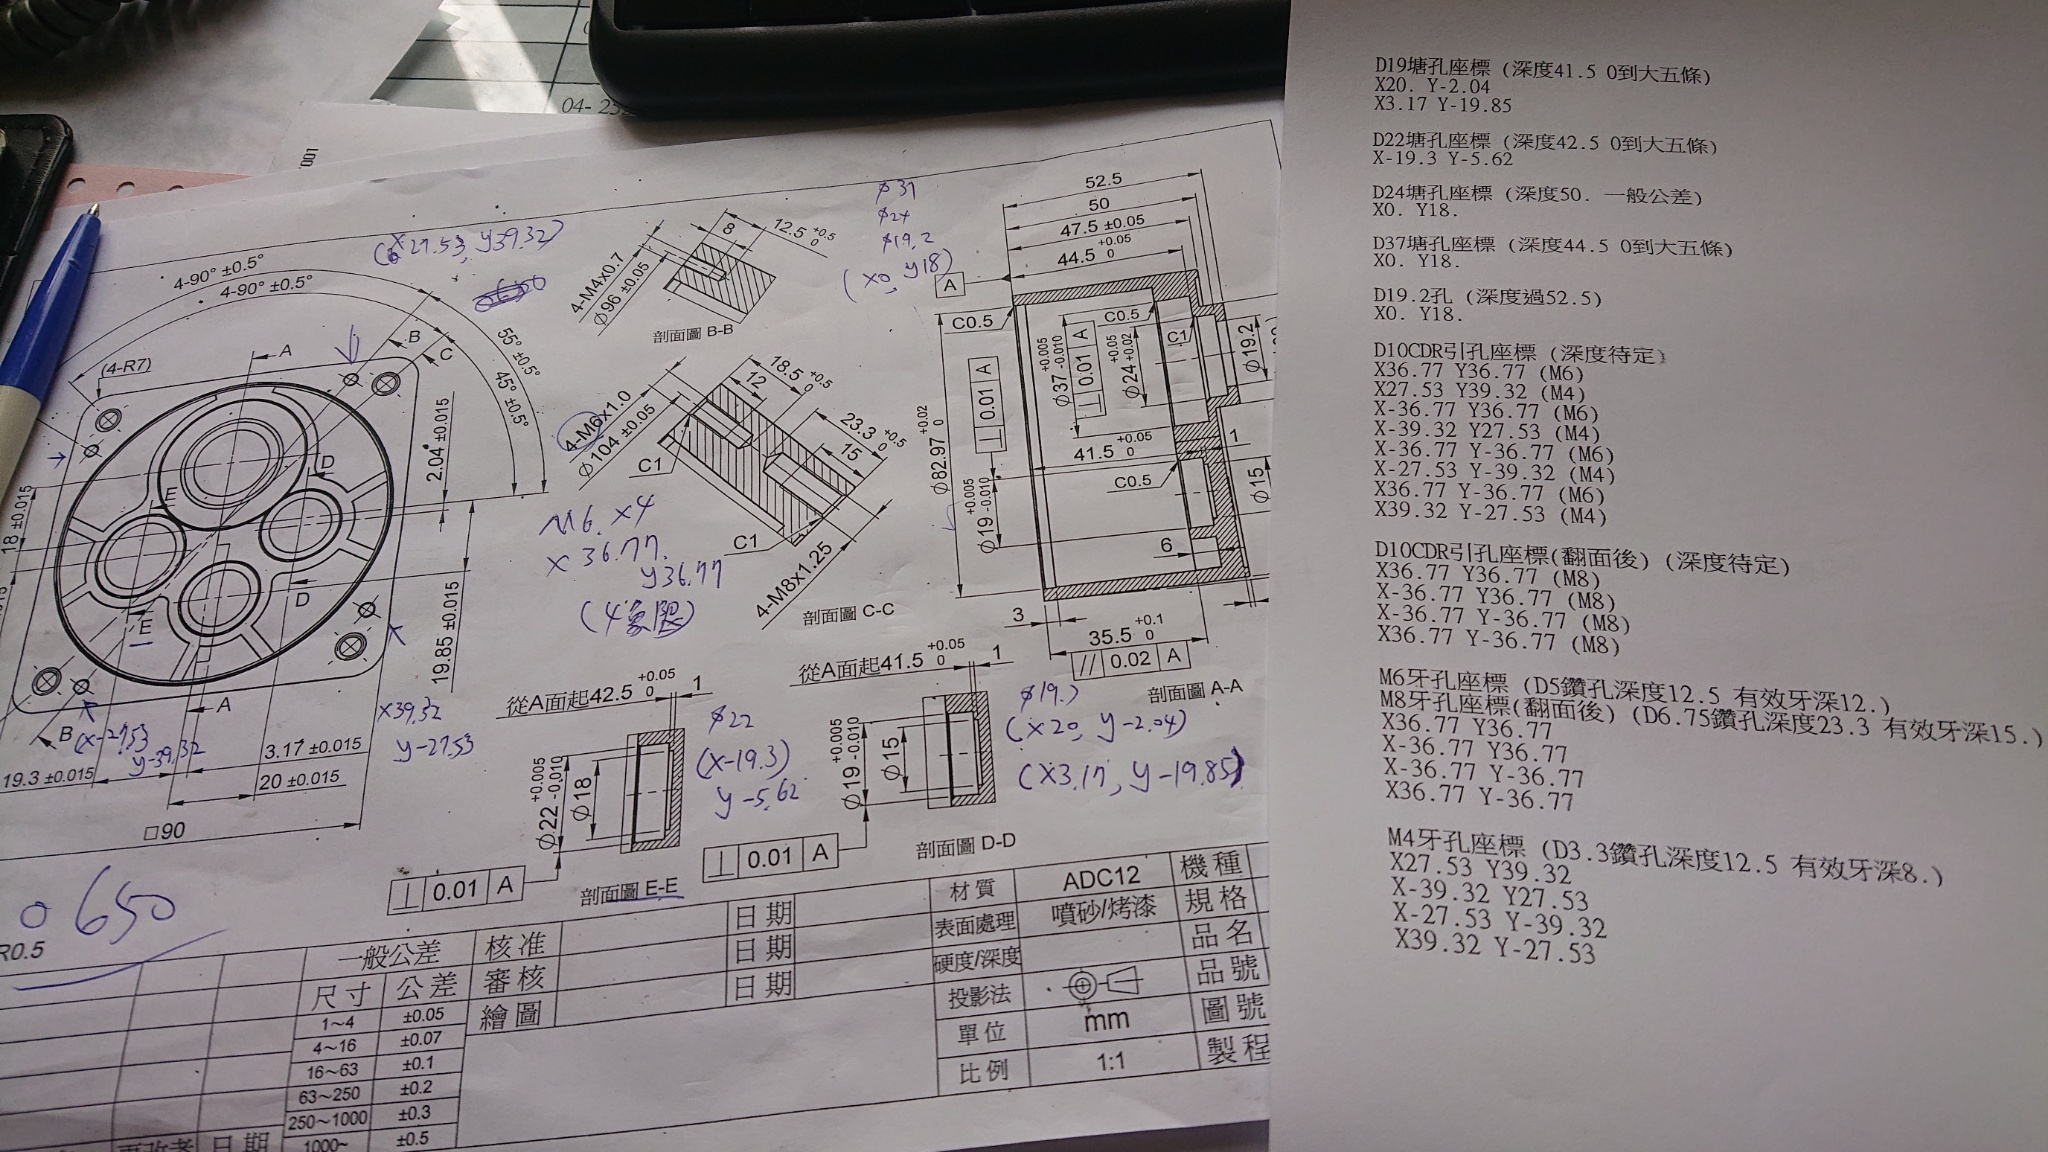 04- 25
001
(x27.53, y39.32)
4-90° ±0.5°
4-90° ±0.5°
55° ±0.5°
45° ±0.5°
(4-R7)
A
B
C
D
E
2.04 ±0.015
18 ±0.015
19.85 ±0.015
E
D
A
B
(x-27.53
y-39.32
x39.32
y-27.53
3.17 ±0.015
19.3 ±0.015
20 ±0.015
□90
0650
R0.5
8
12.5 +0.5 0
4-M4x0.7
Φ96 ±0.05
剖面圖 B-B
18.5 +0.5 0
12
4-M6x1.0
Φ104 ±0.05
23.3 +0.5 0
15
C1
C1
4-M8x1.25
剖面圖 C-C
M6 x4
x36.77
y36.77
(4象限)
φ37
φ24
φ19.2
(x0, y18)
52.5
50
47.5 ±0.05
44.5 +0.05 0
A
C0.5
C0.5
C1
Φ82.97 +0.02 0
⊥ 0.01 A
Φ37 +0.005 -0.010
⊥ 0.01 A
Φ24 +0.05 +0.02
Φ19.2
41.5 +0.05 0
1
C0.5
Φ19 +0.005 -0.010
Φ15
6
3
35.5 +0.1 0
// 0.02 A
剖面圖 A-A
從A面起42.5 +0.05 0
1
Φ22 +0.005 -0.010
Φ18
⊥ 0.01 A
剖面圖 E-E
φ22
(x-19.3)
y-5.62
從A面起41.5 +0.05 0
1
Φ19 +0.005 -0.010
Φ15
⊥ 0.01 A
剖面圖 D-D
(x20, y-2.04)
(x3.17, y-19.85)
一般公差
尺寸 公差
1~4 ±0.05
4~16 ±0.07
16~63 ±0.1
63~250 ±0.2
250~1000 ±0.3
1000~ ±0.5
日期
核准 日期
審核 日期
繪圖 日期
材質 ADC12
表面處理 噴砂/烤漆
硬度/深度
投影法
單位 mm
比例 1:1
機種
規格
品名
品號
圖號
製程
D19塘孔座標 (深度41.5 0到大五條)
X20. Y-2.04
X3.17 Y-19.85
D22塘孔座標 (深度42.5 0到大五條)
X-19.3 Y-5.62
D24塘孔座標 (深度50. 一般公差)
X0. Y18.
D37塘孔座標 (深度44.5 0到大五條)
X0. Y18.
D19.2孔 (深度過52.5)
X0. Y18.
D10CDR引孔座標 (深度待定)
X36.77 Y36.77 (M6)
X27.53 Y39.32 (M4)
X-36.77 Y36.77 (M6)
X-39.32 Y27.53 (M4)
X-36.77 Y-36.77 (M6)
X-27.53 Y-39.32 (M4)
X36.77 Y-36.77 (M6)
X39.32 Y-27.53 (M4)
D10CDR引孔座標(翻面後) (深度待定)
X36.77 Y36.77 (M8)
X-36.77 Y36.77 (M8)
X-36.77 Y-36.77 (M8)
X36.77 Y-36.77 (M8)
M6牙孔座標 (D5鑽孔深度12.5 有效牙深12.)
M8牙孔座標(翻面後) (D6.75鑽孔深度23.3 有效牙深15.)
X36.77 Y36.77
X-36.77 Y36.77
X-36.77 Y-36.77
X36.77 Y-36.77
M4牙孔座標 (D3.3鑽孔深度12.5 有效牙深8.)
X27.53 Y39.32
X-39.32 Y27.53
X-27.53 Y-39.32
X39.32 Y-27.53